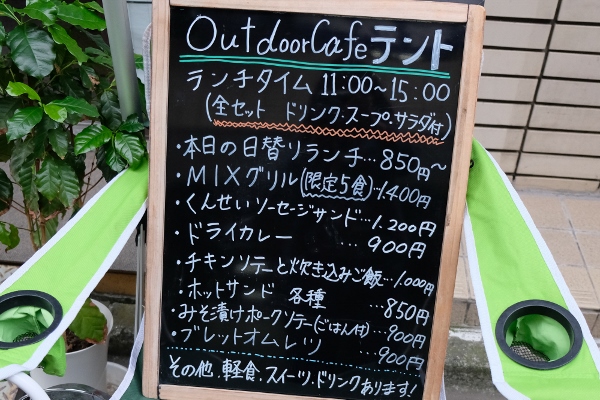 OutdoorCafeテント
ランチタイム 11:00~15:00
(全セット ドリンク・スープ・サラダ付)
・本日の日替りランチ…850円~
・MIXグリル(限定5食)…1.400円
・くんせいソーセージサンド…1.200円
・ドライカレー …900円
・チキンソテーと炊き込みご飯…1.000円
・ホットサンド 各種 …850円
・みそ漬けポークソテー(ごはん付)…900円
・ブレットオムレツ …900円
その他.軽食.スイーツ.ドリンクあります!